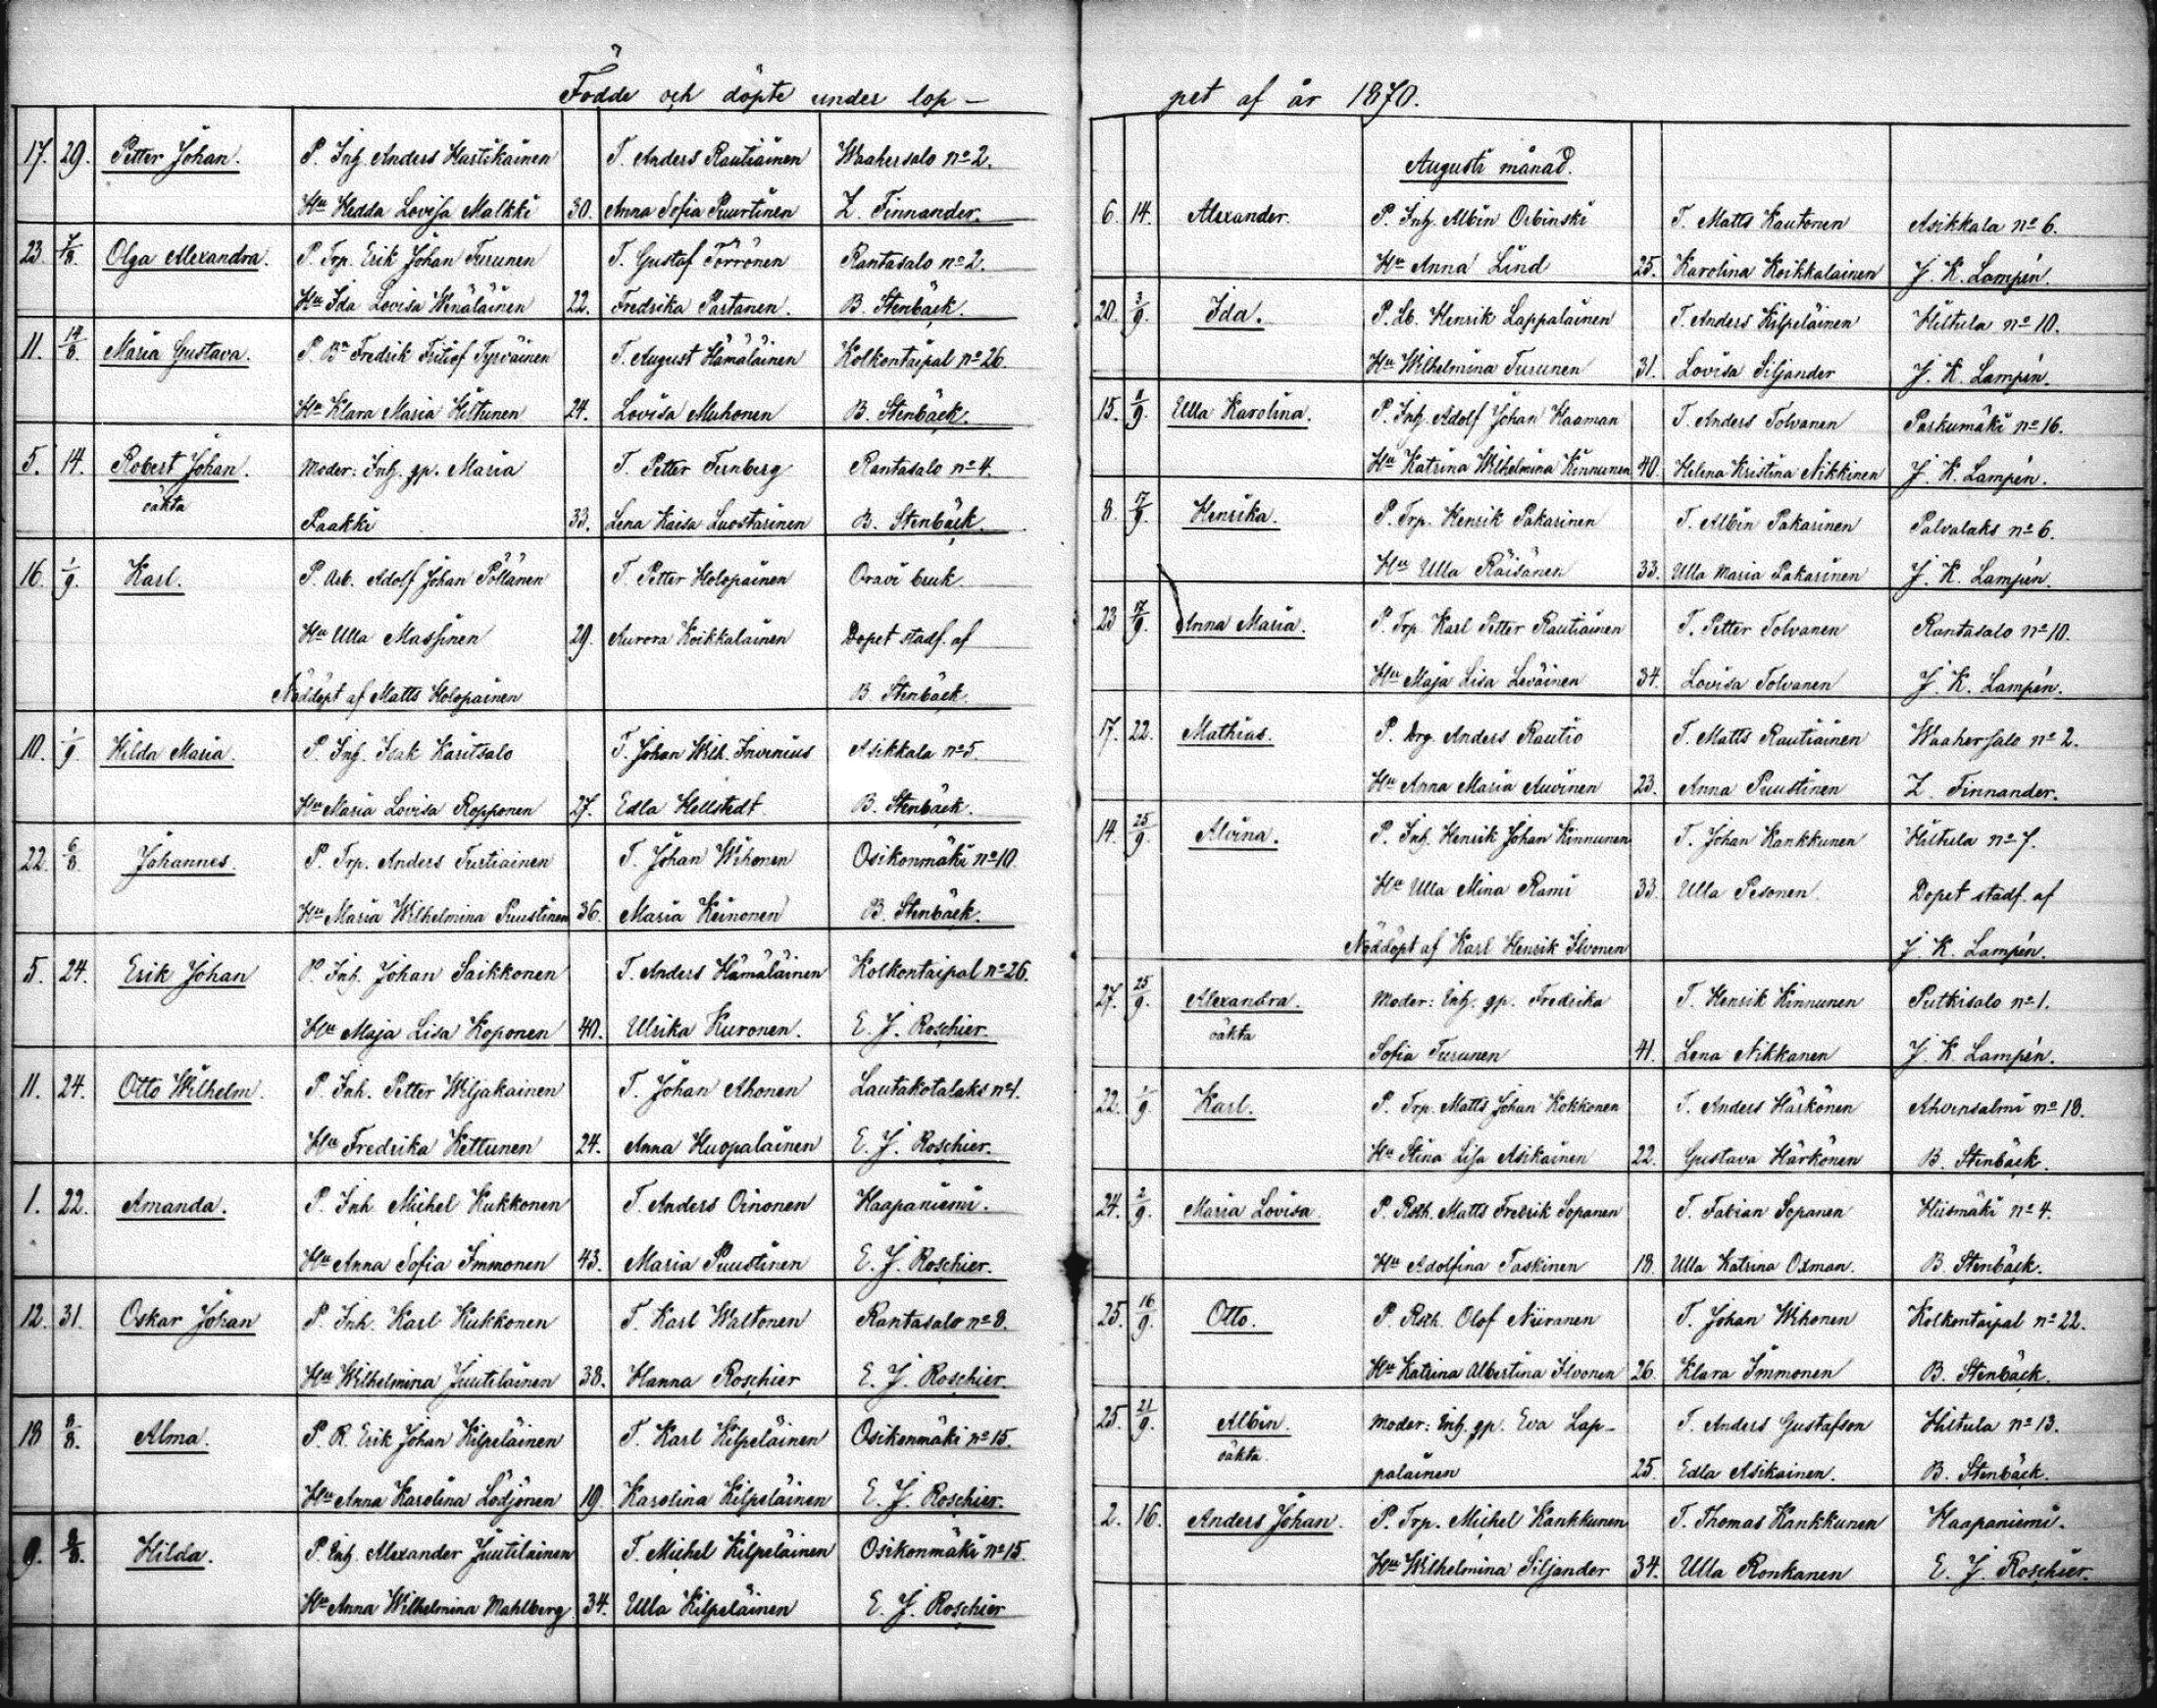 Födde och döpte under lop-
17. 29. Petter Johan. P. Inh. Anders Hartikainen T. Anders Rautiainen Waahersalo nº 2.
Hu Hedda Lovisa Malkki 30. Anna Sofia Puurtinen Z. Finnander.
23. 7/8. Olga Alexandra. P. Trp. Erik Johan Turunen T. Gustaf Törrönen Rantasalo nº 2.
Hu Ida Lovisa Wenäläinen 22. Fredrika Partanen. B. Stenbäck.
11. 14/8. Maria Gustava. P. Bn Fredrik Fritiof Tyrväinen T. August Hämäläinen Kolkontaipal nº 26.
Hu Klara Maria Hiltunen 24. Lovisa Muhonen B. Stenbäck.
5. 14. Robert Johan. Moder: Inh. gp. Maria T. Petter Ternberg Rantasalo nº 4.
oäkta Paakki 33. Lena Kaisa Luostarinen B. Stenbäck.
16. 1/9. Karl. P. Arb. Adolf Johan Pöllänen T. Petter Holopainen Oravi bruk.
Hu Ulla Massinen 29. Aurora Koikkalainen Dopet stadf. af
Nöddöpt af Matts Holopainen B. Stenbäck.
10. 1/9. Hilda Maria. P. Inh. Isak Karitsalo T. Johan Wilh. Invenius Asikkala nº 5.
Hu Maria Lovisa Ropponen 27. Edla Hellstedt B. Stenbäck.
22. 6/8. Johannes. P. Trp. Anders Turtiainen T. Johan Wihonen Osikonmäki nº 10.
Hu Maria Wilhelmina Puustinen 36. Maria Keinonen B. Stenbäck.
5. 24. Erik Johan P. Inh. Johan Saikkonen T. Anders Hämäläinen Kolkontaipal nº 26.
Hu Maja Lisa Koponen 40. Ulrika Kuronen. E. J. Roschier.
11. 24. Otto Wilhelm. P. Inh. Petter Wiljakainen T. Johan Ahonen Lautakotalaks nº 1.
Hu Fredrika Kettunen 24. Anna Huopalainen E. J. Roschier.
1. 22. Amanda. P. Inh. Michel Kukkonen T. Anders Oinonen Haapaniemi.
Hu Anna Sofia Immonen 43. Maria Puustinen E. J. Roschier.
12. 31. Oskar Johan P. Inh. Karl Kukkonen T. Karl Waltonen Rantasalo nº 8.
Hu Wilhelmina Juutilainen 38. Hanna Roschier E. J. Roschier.
18 8/8. Alma. P. R. Erik Johan Kilpeläinen T. Karl Kilpeläinen Osikonmäki nº 15.
Hu Anna Karolina Lödjönen 19. Karolina Kilpeläinen E. J. Roschier.
9. 8/8. Hilda. P. Inh. Alexander Juutilainen T. Michel Kilpeläinen Osikonmäki nº 15.
Hu Anna Wilhelmina Mahlberg 34. Ulla Kilpeläinen E. J. Roschier
pet af år 1870.
Augusti månad.
6. 14. Alexander. P. Inh. Albin Orbinski T. Matts Kautonen Asikkala nº 6.
Hu Anna Lind 25. Karolina Koikkalainen J. K. Lampén.
20. 3/9. Ida. P. Lb. Henrik Lappalainen T. Anders Kilpeläinen Hiltula nº 10.
Hu Wilhelmina Turunen 31. Lovisa Siljander J. K. Lampén.
15. 8/9. Ulla Karolina. P. Inh. Adolf Johan Haaman T. Anders Tolvanen Parkumäki nº 16.
Hu Katrina Wilhelmina Kinnunen 40. Helena Kristina Nikkinen J. K. Lampén.
8. 17/9. Henrika. P. Trp. Henrik Pakarinen T. Albin Pakarinen Palvalaks nº 6.
Hu Ulla Räisänen 33. Ulla Maria Pakarinen J. K. Lampén.
23 17/9. Anna Maria. P. Trp. Karl Petter Rautiainen T. Petter Tolvanen Rantasalo nº 10.
Hu Maja Lisa Leväinen 34. Lovisa Tolvanen J. K. Lampén.
17. 22. Mathias. P. Drg. Anders Rautio T. Matts Rautiainen Waahersalo nº 2.
Hu Anna Maria Auvinen 23. Anna Puustinen Z. Finnander.
14. 25/9. Alvina. P. Inh. Henrik Johan Kinnunen T. Johan Kankkunen Hiltula nº 7.
Hu Ulla Mina Rami 33 Ulla Pesonen. Dopet stadf. af
Nöddöpt af Karl Henrik Ilvonen J. K. Lampén.
27. 25/9. Alexandra. Moder: Inh. gp. Fredrika T. Henrik Kinnunen Putkisalo nº 1.
oäkta Sofia Turunen 41. Lena Nikkanen J. K. Lampén.
22. 1/9. Karl. P. Trp. Matts Johan Kokkonen T. Anders Härkönen Ahvensalmi nº 18.
Hu Stina Lisa Asikainen 22. Gustava Härkönen B. Stenbäck.
24. 2/9. Maria Lovisa. P. Rsth. Matts Fredrik Sopanen T. Fabian Sopanen Hiismäki nº 4.
Hu Adolfina Taskinen 18. Ulla Katrina Oxman. B. Stenbäck.
25. 16/9. Otto. P. Rsth. Olof Niiranen T. Johan Wihonen Kolkontaipal nº 22.
Hu Katrina Albertina Ilvonen 26. Klara Immonen B. Stenbäck.
25. 21/9. Albin. Moder: Inh. gp. Eva Lap- T. Anders Gustafson Hiltula nº 13.
oäkta. palainen 25. Edla Asikainen. B. Stenbäck.
2. 16. Anders Johan. P. Trp. Michel Kankkunen T. Thomas Kankkunen Haapaniemi.
Hu Wilhelmina Siljander 34. Ulla Ronkanen E. J. Roschier.